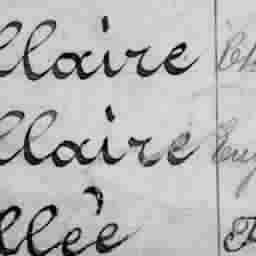 llaire
llaire Eug
llée